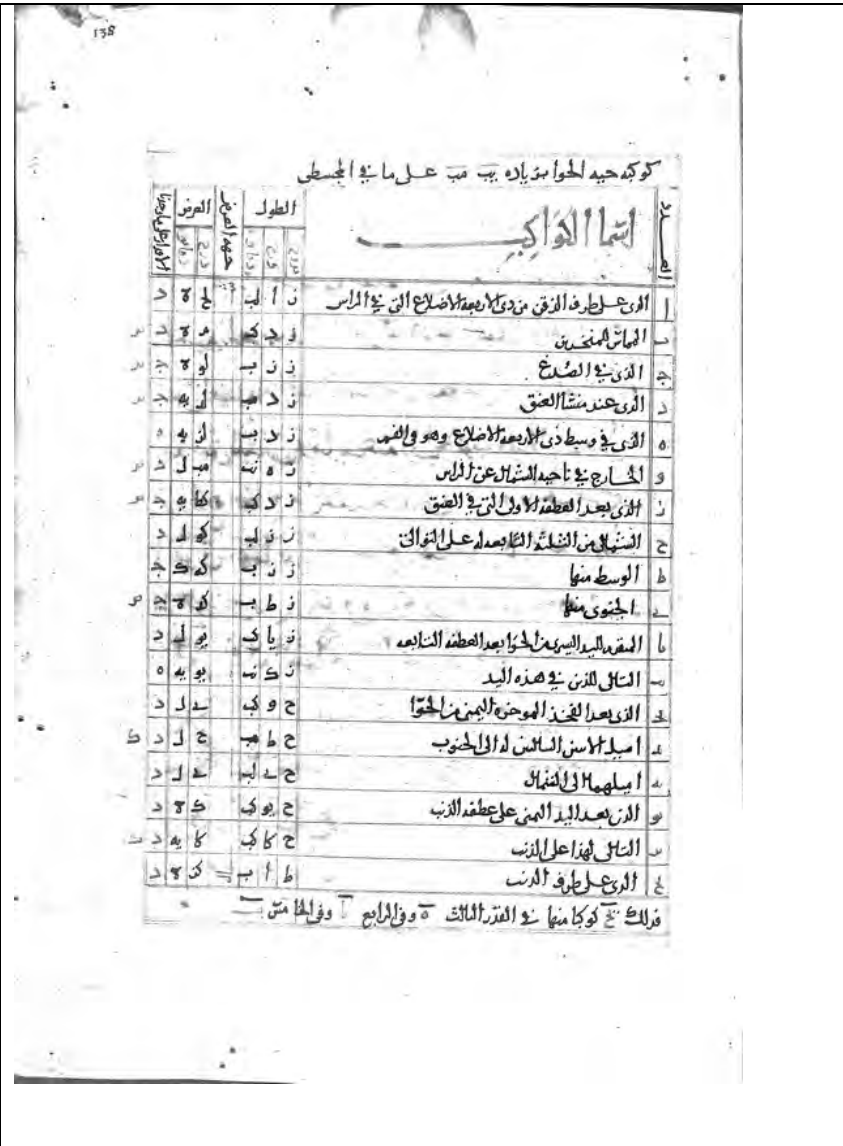 138
كوكبه حيه الحوا بزياده يب مب على ما في المجسطي
العدد اسما الكواكب الطول جهه العرض العرض
بروج درج دقايق درج دقايق
ا الذى على طرف الذقن من ذى الاربعه الاضلاع التى في الراس ز ا لب لح ه د
ب المماس للمنخرين ز د كب م ه د
ج الذى في الصدغ ز ز ب لو ه ج
د الذى عند منشا العنق ز د مب لد يه ج
ه الذى في وسط ذى الاربعه الاضلاع وهو في الفم ز د ب لز يه ه
و الخارج في ناحيه الشمال عن الراس ز ه نب مب ل د
ز الذى بعد العطفه الاولى التى في العنق ز د كب كط يه ج
ح الشمالى من الثلثه التابعه له على التوالى ز ز لب كو ل د
ط الوسط منها ز ز ب كه ك ج
ى الجنوبى منها ز ط ب كد ه ج
يا المتقدم لليد اليسرى من الحوا بعد العطفه التابعه ز يا كب يو ل د
يب التالى للذين في هذه اليد ز ك نب يو يه ه
يج الذى بعد الفخذ الموخره اليمنى من الحوا ح و كب ى ل د
يد اميل الاثنين التاليين له الى الجنوب ح ط مب ح ل د
يه اميلهما الى الشمال ح ى لب ى ل د
يو الذى بعد اليد اليمنى على عطفه الذنب ح يو كب ك ه د
يز التالى لهذا على الذنب ح كا كب كا يه د
يح الذى على طرف الذنب ط ا ب كز ه د
فذلك يح كوكبا منها في القدر الثالث ه وفى الرابع وفى الخامس